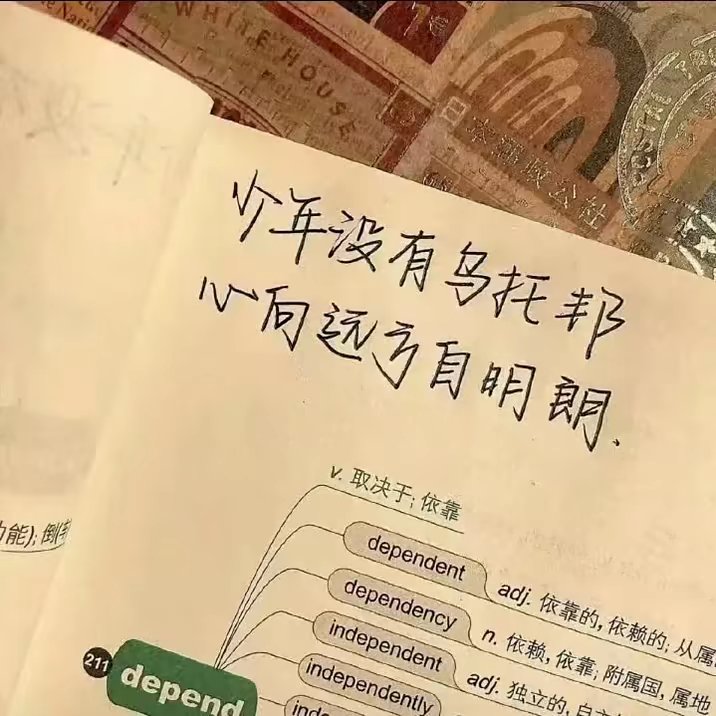 WHITE HOUSE
少年没有乌托邦
心向远方自明朗.
v. 取决于; 依靠
dependent
adj. 依靠的, 依赖的; 从属
dependency
n. 依赖, 依靠; 附属国, 属地
independent
adj. 独立的,
independently
211
depend